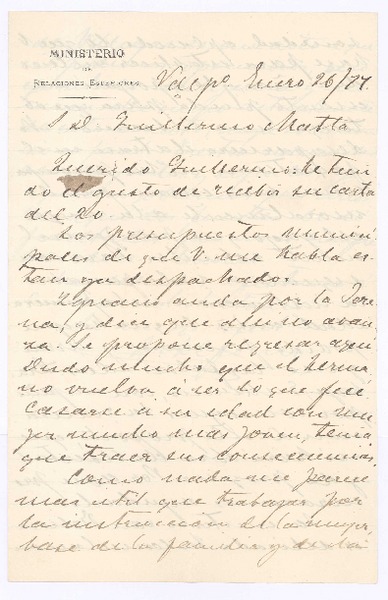 MINISTERIO
DE
RELACIONES ESTERIORES
Valpo. Enero 26/77.
S D. Guillermo Matta
Querido Guillermo: He teni
do el gusto de recibir su carta
del 20
Los presupuestos munici
pales de que V. me habla es-
tan ya despachados.
Ignacio anda por la Sere
na, y dice que alli no avan
za. Se propone regresar aquí
Dudo mucho que el herma
no vuelva á ser lo que fué
Casarse a su edad con mu
jer mucho mas joven, tenia
que traer sus consecuencias.
Como nada me parece
mas util que trabajar por
la instruccion de la mujer
base de la familia y de la